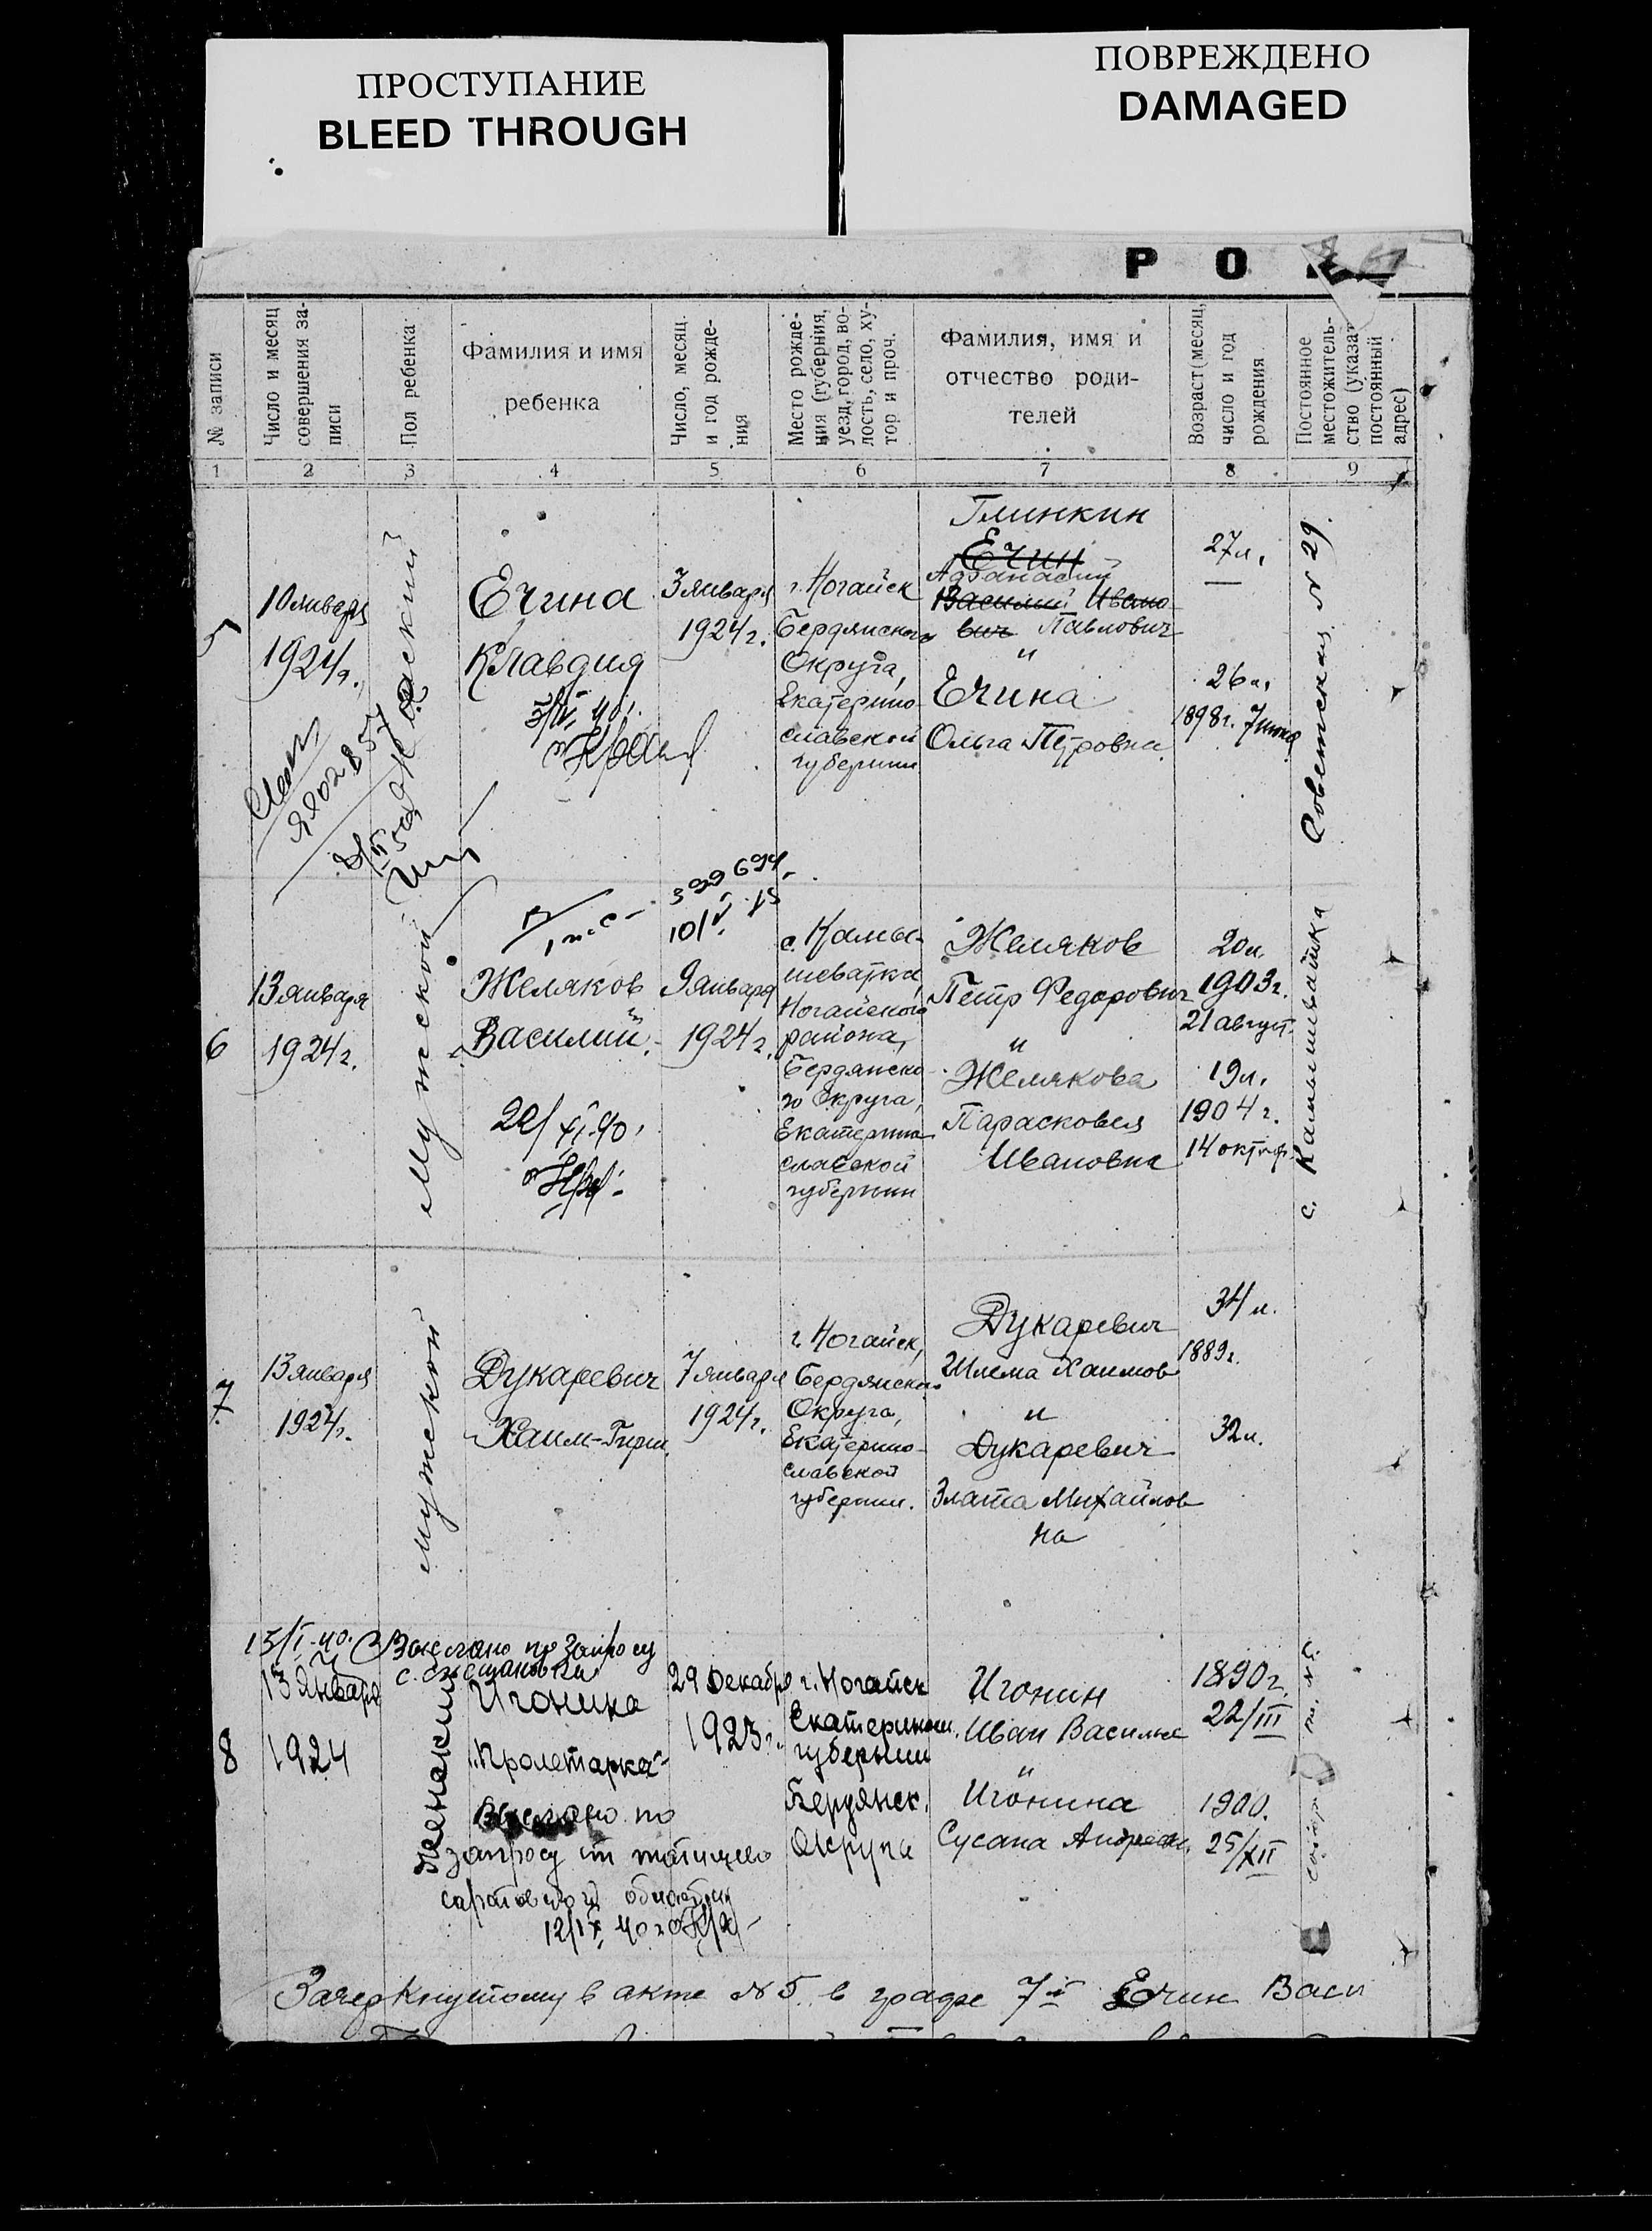 ПРОСТУПАНИЕ
BLEED THROUGH
ПОВРЕЖДЕНО
DAMAGED
Р О
№ записи
Число и месяц
совершения за-
писи
Пол ребенка
Фамилия и имя
ребенка
Число, месяц
и год рожде-
ния
Место рожде-
ния (губерния,
уезд, город, во-
лость, село, ху-
тор и проч.
Фамилия, имя и
отчество роди-
телей
Возраст (месяц,
число и год
рождения
Постоянное
местожитель-
ство (указат
постоянный
адрес)
1 2 3 4 5 6 7 8 9
5
10 января
1924 г.
Ечина
Клавдия
3 января
1924 г.
г. Ногайск
Бердянского
Округа,
Екатерино
славской
губернии
Глинкин
Ечин
Афанасий
Василий Ивано
вич Павлович
и
Ечина
Ольга Петровна
27 л.
26 л.
1898 г. 7
Советская N 29.
399694
6
13 января
1924 г.
мужской
Желяков
Василий
9 января
1924 г.
с. Камы-
шеватка,
Ногайского
района,
Бердянско
го Округа,
Екатерино
славской
губернии
Желяков
Петр Федорович
и
Желякова
Парасковея
Ивановна
20 л.
1903 г.
21 август.
19 л.
1904 г.
14 октяб.
с. Камышеватка
7
13 января
1924 г.
мужской
Дукаревич
Хаим-Гирш
7 января
1924 г.
г. Ногайск,
Бердянского
Округа,
Екатерино-
славской
губернии.
Дукаревич
Шлема Хаимов
и
Дукаревич
Злата Михайлов
на
34 л.
1889 г.
32 л.
15/I-40.
по запросу
8
13 Января
1924
женский
Игонина
Пролетарка
29 декабря
1923 г.
г. Ногайск
Екатеринославск.
губернии
Бердянск.
Округа
Игонин
Иван Василье
и
Игонина
Сусана Андреев.
1890 г.
22/III
1900.
25/XII
Выслано по
запросу
саратовской области
12/IX 40 г.
Зачеркнутому в акте N 5 в графе 7й Ечин Васи